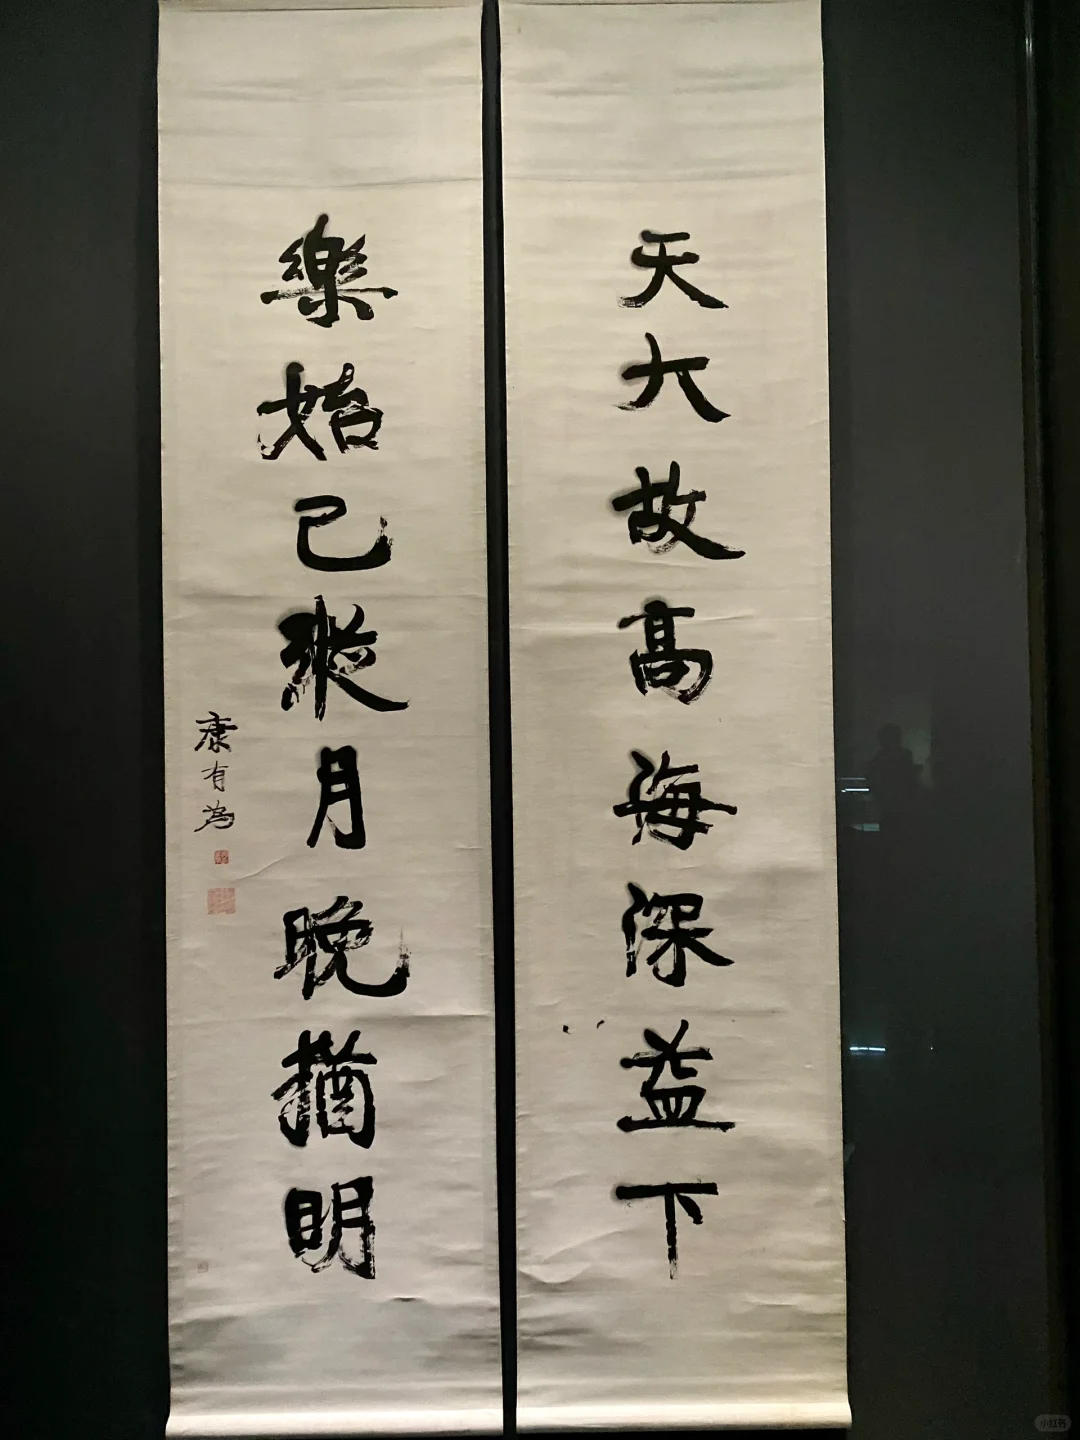 天大故高海深益下
樂始已縱月晚猶明
康有為
小红书